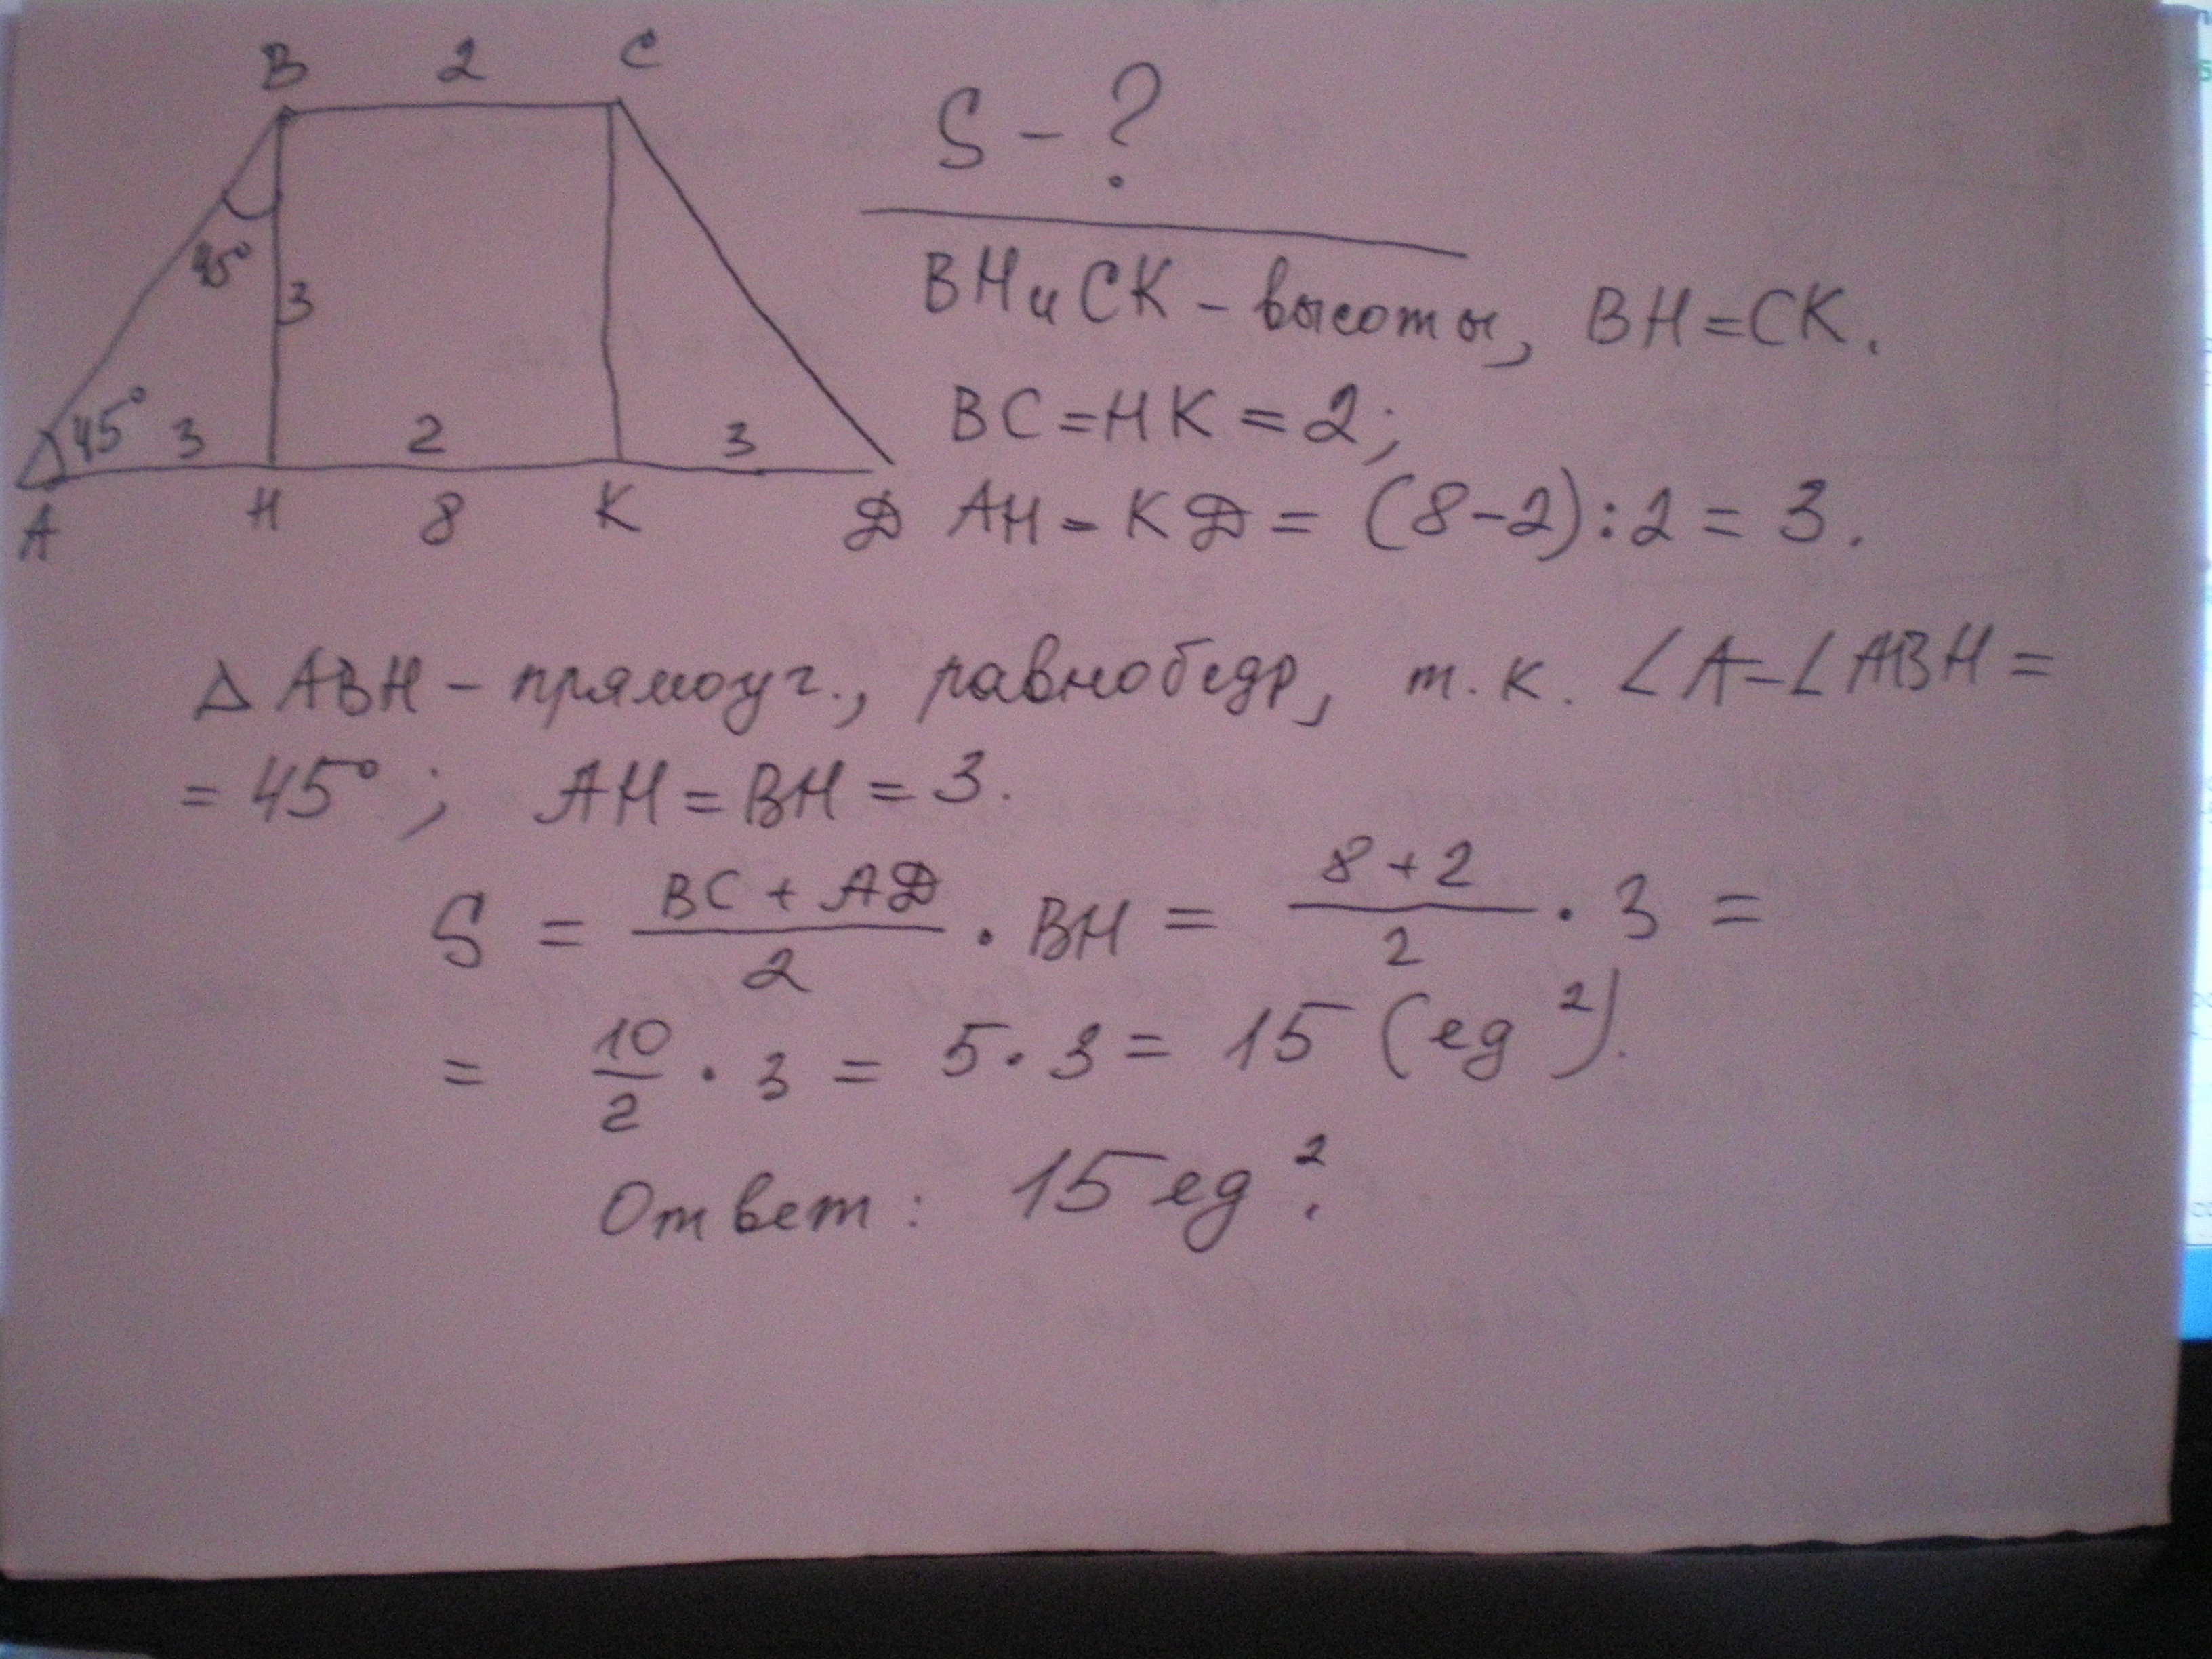 B 2 C
S - ?
45°
3
BH и CK - высоты, BH = CK.
45° 3 2 3
BC = HK = 2;
A H 8 K Д
AH = KД = (8-2):2 = 3.
Δ ABH - прямоуг., равнобедр, т.к. ∠A = ∠ABH =
= 45°; AH = BH = 3.
S = (BC + AД)/2 · BH = (8+2)/2 · 3 =
= 10/2 · 3 = 5 · 3 = 15 (ед²).
Ответ: 15 ед².